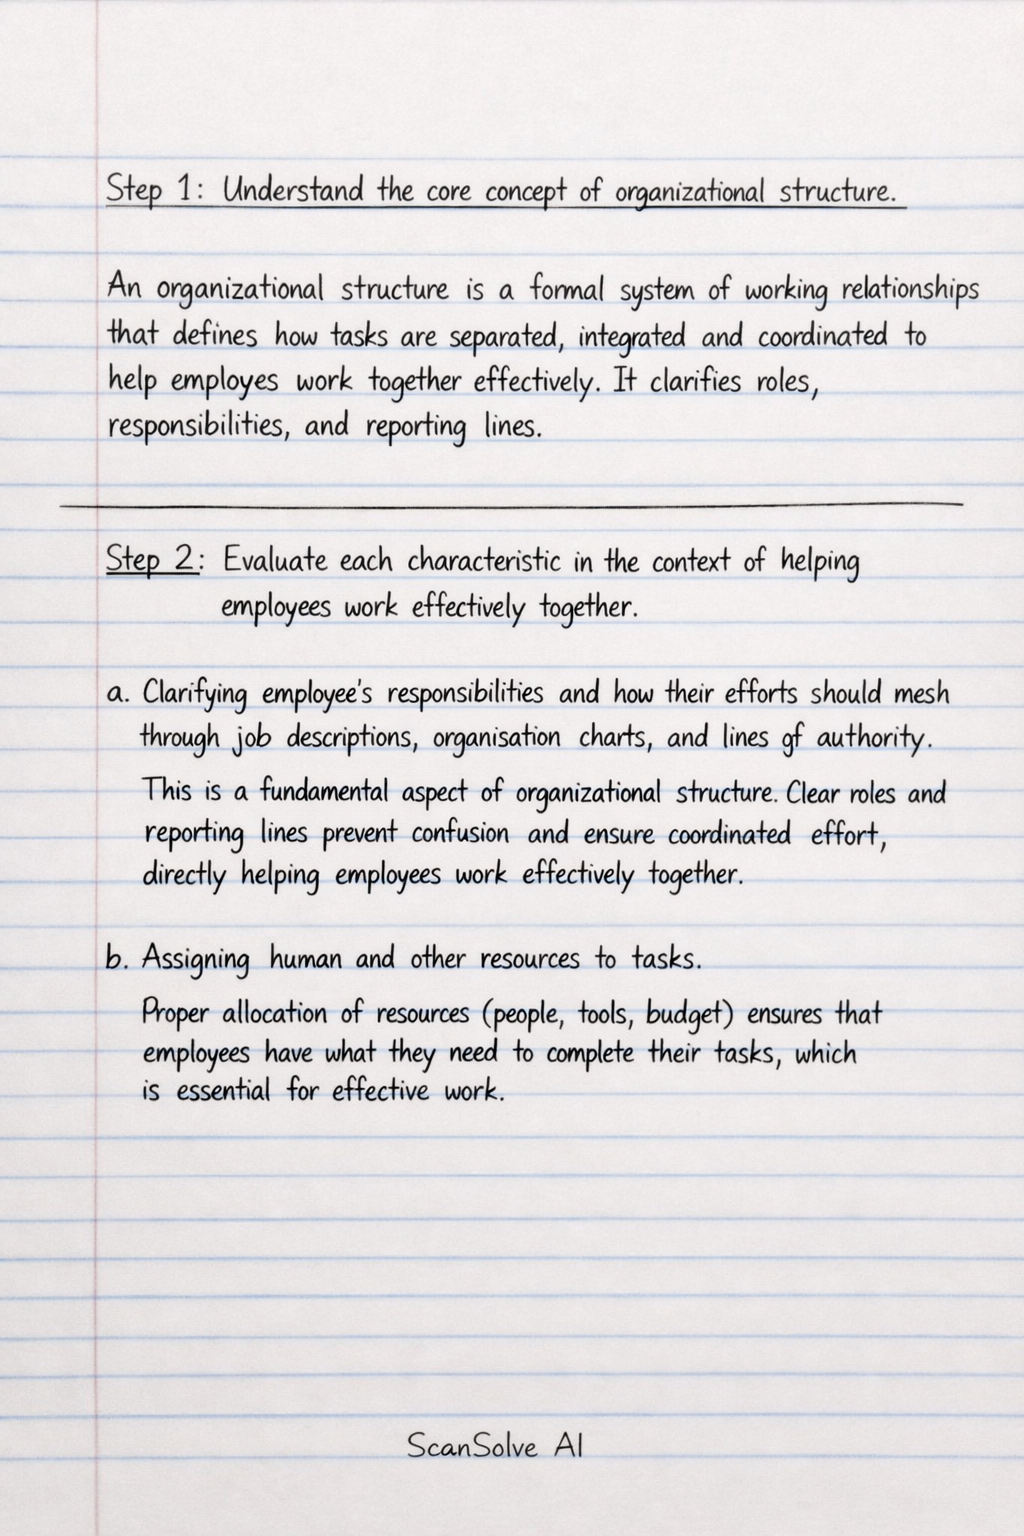 Step 1: Understand the core concept of organizational structure.
An organizational structure is a formal system of working relationships
that defines how tasks are separated, integrated and coordinated to
help employes work together effectively. It clarifies roles,
responsibilities, and reporting lines.
Step 2: Evaluate each characteristic in the context of helping
employees work effectively together.
a. Clarifying employee's responsibilities and how their efforts should mesh
through job descriptions, organisation charts, and lines of authority.
This is a fundamental aspect of organizational structure. Clear roles and
reporting lines prevent confusion and ensure coordinated effort,
directly helping employees work effectively together.
b. Assigning human and other resources to tasks.
Proper allocation of resources (people, tools, budget) ensures that
employees have what they need to complete their tasks, which
is essential for effective work.
ScanSolve AI